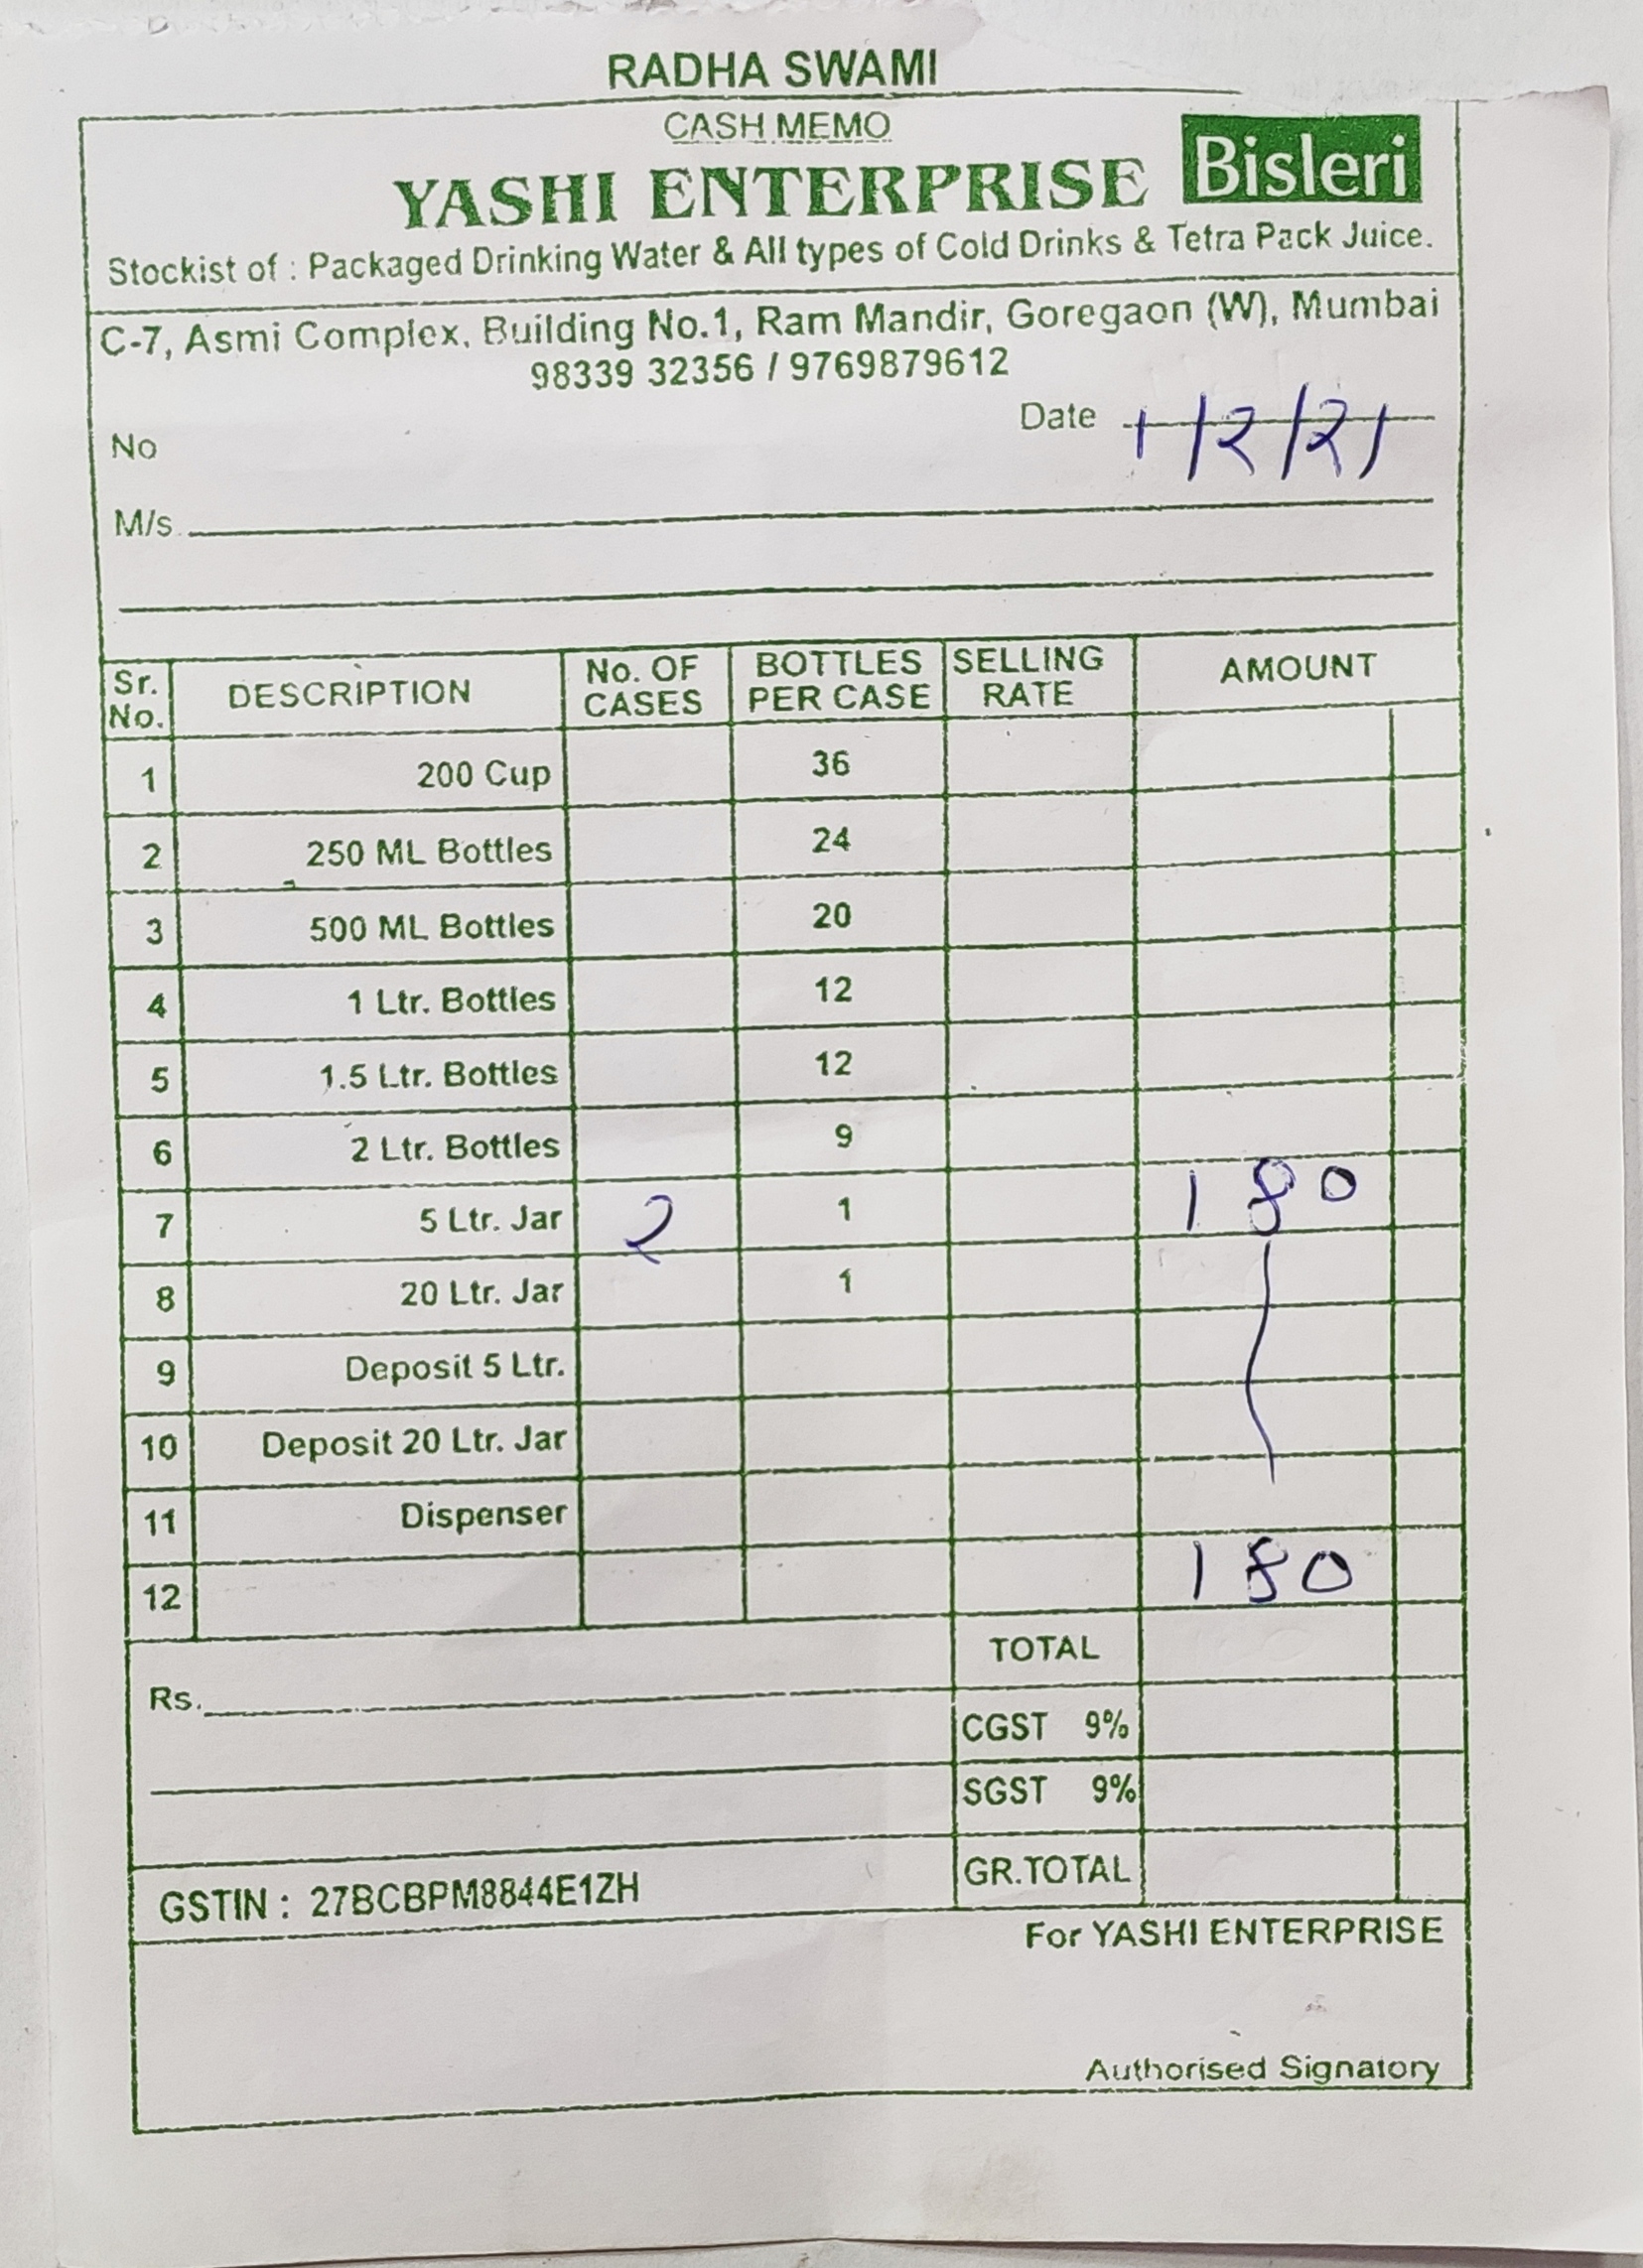 RADHA SWAMI
CASH MEMO
YASHI ENTERPRISE Bisleri
Stockist of : Packaged Drinking Water & All types of Cold Drinks & Tetra Pack Juice.
C-7, Asmi Complex, Building No.1, Ram Mandir, Goregaon (W), Mumbai
98339 32356 / 9769879612
No Date 1/2/21
M/s.
Sr. No. DESCRIPTION No. OF CASES BOTTLES PER CASE SELLING RATE AMOUNT
1 200 Cup 36
2 250 ML Bottles 24
3 500 ML Bottles 20
4 1 Ltr. Bottles 12
5 1.5 Ltr. Bottles 12
6 2 Ltr. Bottles 9
7 5 Ltr. Jar 2 1 180
8 20 Ltr. Jar 1
9 Deposit 5 Ltr.
10 Deposit 20 Ltr. Jar
11 Dispenser
12 180
TOTAL
Rs.
CGST 9%
SGST 9%
GR.TOTAL
GSTIN : 27BCBPM8844E1ZH
For YASHI ENTERPRISE
Authorised Signatory